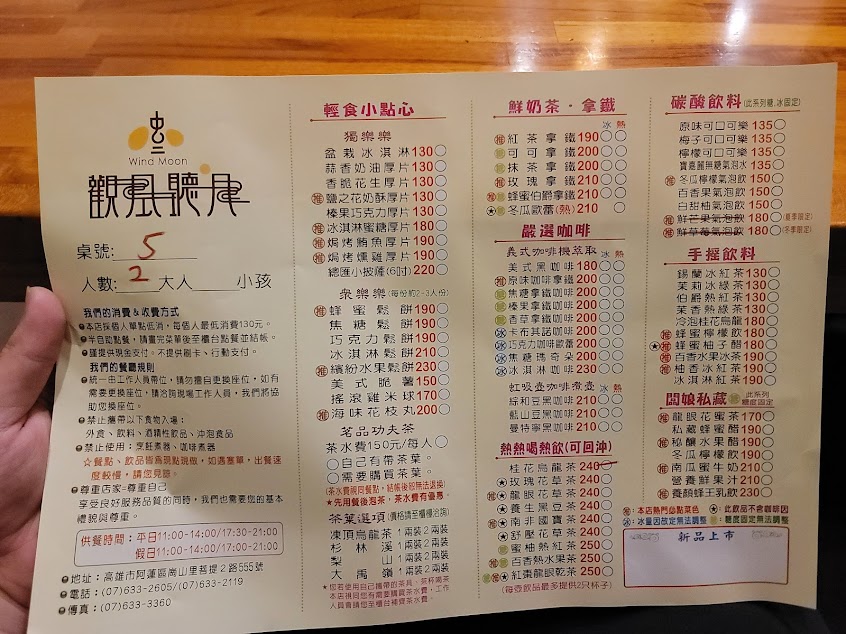 Wind Moon
觀風聽月
桌號: 5
人數: 2 大人 小孩
我們的消費&收費方式
本店採個人單點低消,每個人最低消費130元。
半自助點餐,請畫完菜單後至櫃台點餐並結帳。
僅提供現金支付。不提供刷卡、行動支付。
我們的餐廳規則
統一由工作人員帶位,請勿擅自更換座位,如有
需要更換座位,請洽詢現場工作人員,我們將協
助您換座位。
禁止攜帶以下食物入場:
外食、飲料、酒精性飲品、沖泡食品
禁止使用:烹飪煮器、咖啡煮器
☆餐點、飲品皆為現點現做,如遇塞單,出餐速
度較慢,請您見意。
尊重店家=尊重自己
享受良好服務品質的同時,我們也需要您的基本
禮貌與尊重。
供餐時間:平日11:00-14:00/17:30-21:00
假日11:00-14:00/17:00-21:00
地址:高雄市阿蓮區崗山里菩提2路555號
電話:(07)633-2605/(07)633-2119
傳真:(07)633-3360
輕食小點心
獨樂樂
盆栽冰淇淋130
蒜香奶油厚片130
香脆花生厚片130
推 鹽之花奶酥厚片130
榛果巧克力厚片130
推 冰淇淋蜜糖厚片180
推 焗烤鮪魚厚片190
推 焗烤燻雞厚片190
總匯小披薩(6吋)220
眾樂樂(每份約2-3人份)
推 蜂蜜鬆餅190
焦糖鬆餅190
巧克力鬆餅190
冰淇淋鬆餅210
推 繽紛水果鬆餅230
美式脆薯150
搖滾雞米球170
推 海味花枝丸200
茗品功夫茶
茶水費150元/每人
自己有帶茶葉。
需要購買茶葉。
(茶水費視同餐點,結帳後恕無法退換)
★先用餐後泡茶,茶水費有優惠。
茶葉選項(價格請至櫃檯洽詢)
凍頂烏龍茶 1兩裝 2兩裝
杉林溪 1兩裝 2兩裝
梨山 1兩裝 2兩裝
大禹嶺 1兩裝 2兩裝
鮮奶茶・拿鐵
冰 熱
推 紅茶拿鐵190
可可拿鐵200
抹茶拿鐵200
推 玫瑰拿鐵210
推 蜂蜜伯爵拿鐵210
★ 冬瓜歐蕾(熱)210
嚴選咖啡
義式咖啡機萃取 冰 熱
美式黑咖啡180
原味拿鐵咖啡200
焦糖拿鐵咖啡200
榛果拿鐵咖啡200
香草拿鐵咖啡200
冰 卡布其諾咖啡200
冰 巧克力咖啡歐蕾200
冰 焦糖瑪奇朵200
冰 冰淇淋咖啡230
虹吸壺咖啡煮壺 冰 熱
綜和豆黑咖啡210
藍山豆黑咖啡210
曼特寧黑咖啡210
熱熱喝熱飲(可回沖)
桂花烏龍茶240
★ 玫瑰花草茶240
推 龍眼花茶240
★ 養生黑豆茶240
★ 推 南非國寶茶240
★ 舒壓花草茶240
蜜柚熱紅茶250
推 百香熱水果茶250
★ 推 紅棗龍眼乾茶250
(每壺飲品最多提供2只杯子)
碳酸飲料(此系列糖、冰固定)
原味可口可樂135
梅子可口可樂135
檸檬可口可樂135
寶嘉麗無糖氣泡水135
推 冬瓜檸檬氣泡飲150
百香果氣泡飲150
白甜柚氣泡飲150
推 鮮芒果氣泡飲180(夏季限定)
推 鮮草莓氣泡飲180(冬季限定)
手搖飲料
錫蘭冰紅茶130
茉莉冰綠茶130
伯爵熱紅茶130
茉香熱綠茶130
冷泡桂花烏龍180
推 蜂蜜檸檬飲180
★ 推 蜂蜜柚子醋180
推 百香水果冰茶190
推 柚香冰紅茶190
冰淇淋紅茶190
闆娘私藏 此系列糖度固定
推 龍眼花蜜茶170
私藏蜂蜜醋190
推 秘釀水果醋190
冬瓜檸檬飲190
推 南瓜蜜牛奶210
營養鮮果汁210
推 養顏蜂王乳飲230
推:本店熱門必點菜色 ★:此飲品不含咖啡因
冰:冰量因故定無法調整 :糖度固定無法調整
新品上市